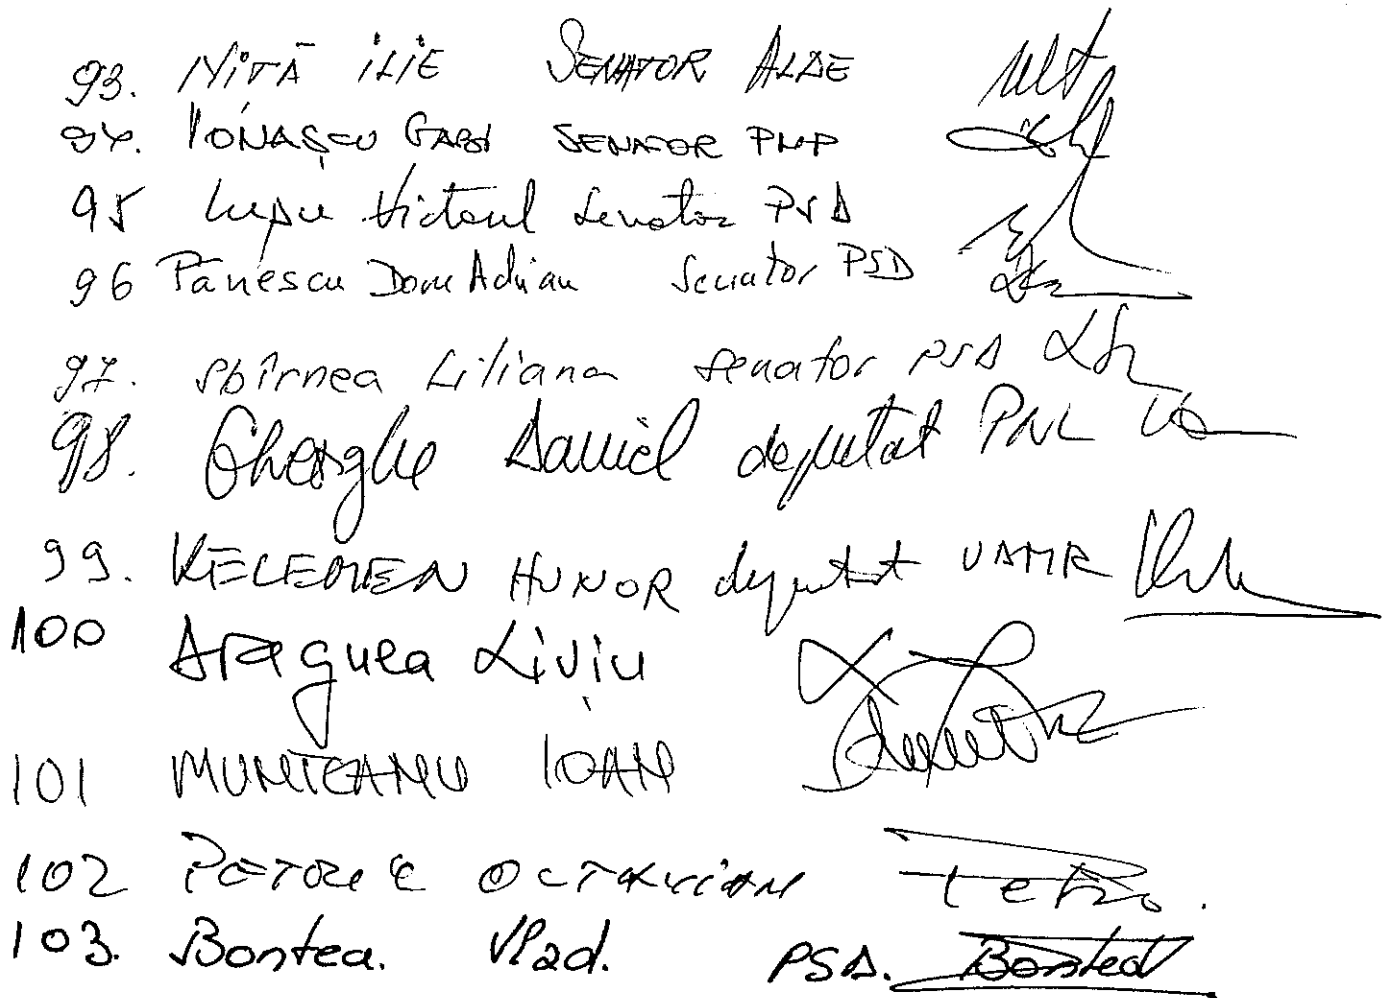 93. NIȚĂ ILIE SENATOR ALDE
94. IONAȘCU GABI SENATOR PMP
95 Lupu Victorel Senator PSD
96 Pănescu Doru Adrian Senator PSD
97. Sbîrnea Liliana senator PSD
98. Gheorghe Daniel deputat PNL
99. KELEMEN HUNOR deputat UDMR
100 Liviu
101 MUNTEANU IOAN
102 PETRIC OCTAVIAN
103. Bontea. Vlad. PSD. Bontea